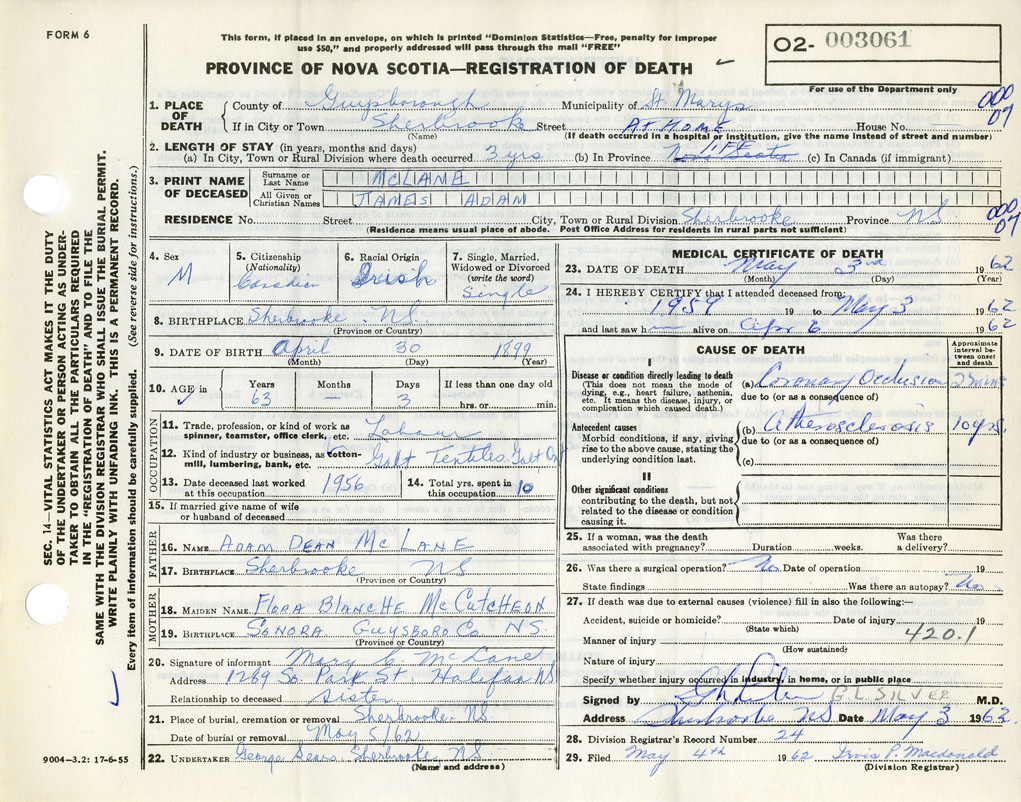 FORM 6
This form, if placed in an envelope, on which is printed "Dominion Statistics—Free, penalty for improper
use $50," and properly addressed will pass through the mail "FREE"
PROVINCE OF NOVA SCOTIA—REGISTRATION OF DEATH
02- 003061
For use of the Department only
1. PLACE OF DEATH County of Guysborough Municipality of St Marys
000 07
If in City or Town Sherbrooke Street AT HOME House No.
(Name) (If death occurred in a hospital or institution, give the name instead of street and number)
2. LENGTH OF STAY (in years, months and days)
(a) In City, Town or Rural Division where death occurred 3 yrs (b) In Province LIFE Nova Scotia (c) In Canada (if immigrant)
3. PRINT NAME OF DECEASED
Surname or Last Name McLANE
All Given or Christian Names JAMES ADAM
RESIDENCE No. Street City, Town or Rural Division Sherbrooke Province NS
000 07
(Residence means usual place of abode. Post Office Address for residents in rural parts not sufficient)
4. Sex M
5. Citizenship (Nationality) Canadian
6. Racial Origin Irish
7. Single, Married, Widowed or Divorced (write the word) Single
8. BIRTHPLACE Sherbrooke NS.
(Province or Country)
9. DATE OF BIRTH April 30 1899
(Month) (Day) (Year)
10. AGE in Years 63 Months — Days 3 If less than one day old hrs. or min.
OCCUPATION
11. Trade, profession, or kind of work as spinner, teamster, office clerk, etc. Labour
12. Kind of industry or business, as cotton-mill, lumbering, bank, etc. Galt Textiles Galt Ont
13. Date deceased last worked at this occupation 1956
14. Total yrs. spent in this occupation 10
15. If married give name of wife or husband of deceased
FATHER
16. NAME ADAM DEAN McLANE
17. BIRTHPLACE Sherbrooke NS
(Province or Country)
MOTHER
18. MAIDEN NAME FLORA BLANCHE McCUTCHEON
19. BIRTHPLACE SONORA GUYSBORO Co. NS.
(Province or Country)
20. Signature of informant Mary C. McLane
Address 1269 So. Park St Halifax NS
Relationship to deceased Sister
21. Place of burial, cremation or removal Sherbrooke NS.
Date of burial or removal May 5/62
22. UNDERTAKER George Sears Sherbrooke NS
(Name and address)
MEDICAL CERTIFICATE OF DEATH
23. DATE OF DEATH May 3rd 1962
(Month) (Day) (Year)
24. I HEREBY CERTIFY that I attended deceased from:
1959 19 to May 3 1962
and last saw h alive on Apr 6 1962
CAUSE OF DEATH
Approximate interval between onset and death
I
Disease or condition directly leading to death
(This does not mean the mode of dying, e.g., heart failure, asthenia, etc. It means the disease, injury, or complication which caused death.)
(a) Coronary Occlusion mins
due to (or as a consequence of)
Antecedent causes
Morbid conditions, if any, giving rise to the above cause, stating the underlying condition last.
(b) Atherosclerosis 10 yrs.
due to (or as a consequence of)
(c)
II
Other significant conditions
contributing to the death, but not related to the disease or condition causing it.
25. If a woman, was the death associated with pregnancy? Duration weeks. Was there a delivery?
26. Was there a surgical operation? No. Date of operation 19
State findings Was there an autopsy? No.
27. If death was due to external causes (violence) fill in also the following:—
Accident, suicide or homicide? Date of injury 19
(State which)
420.1
Manner of injury
(How sustained)
Nature of injury
Specify whether injury occurred in industry, in home, or in public place
Signed by G.L. SILVER M.D.
Address Sherbrooke NS Date May 3 1962.
28. Division Registrar's Record Number 24
29. Filed May 4th 1962 Irvis P. Macdonald
(Division Registrar)
SEC. 14—VITAL STATISTICS ACT MAKES IT THE DUTY
OF THE UNDERTAKER OR PERSON ACTING AS UNDER-
TAKER TO OBTAIN ALL THE PARTICULARS REQUIRED
IN THE "REGISTRATION OF DEATH" AND TO FILE THE
SAME WITH THE DIVISION REGISTRAR WHO SHALL ISSUE THE BURIAL PERMIT.
WRITE PLAINLY WITH UNFADING INK. THIS IS A PERMANENT RECORD.
Every item of information should be carefully supplied. (See reverse side for instructions.)
9004—3.2: 17-6-55